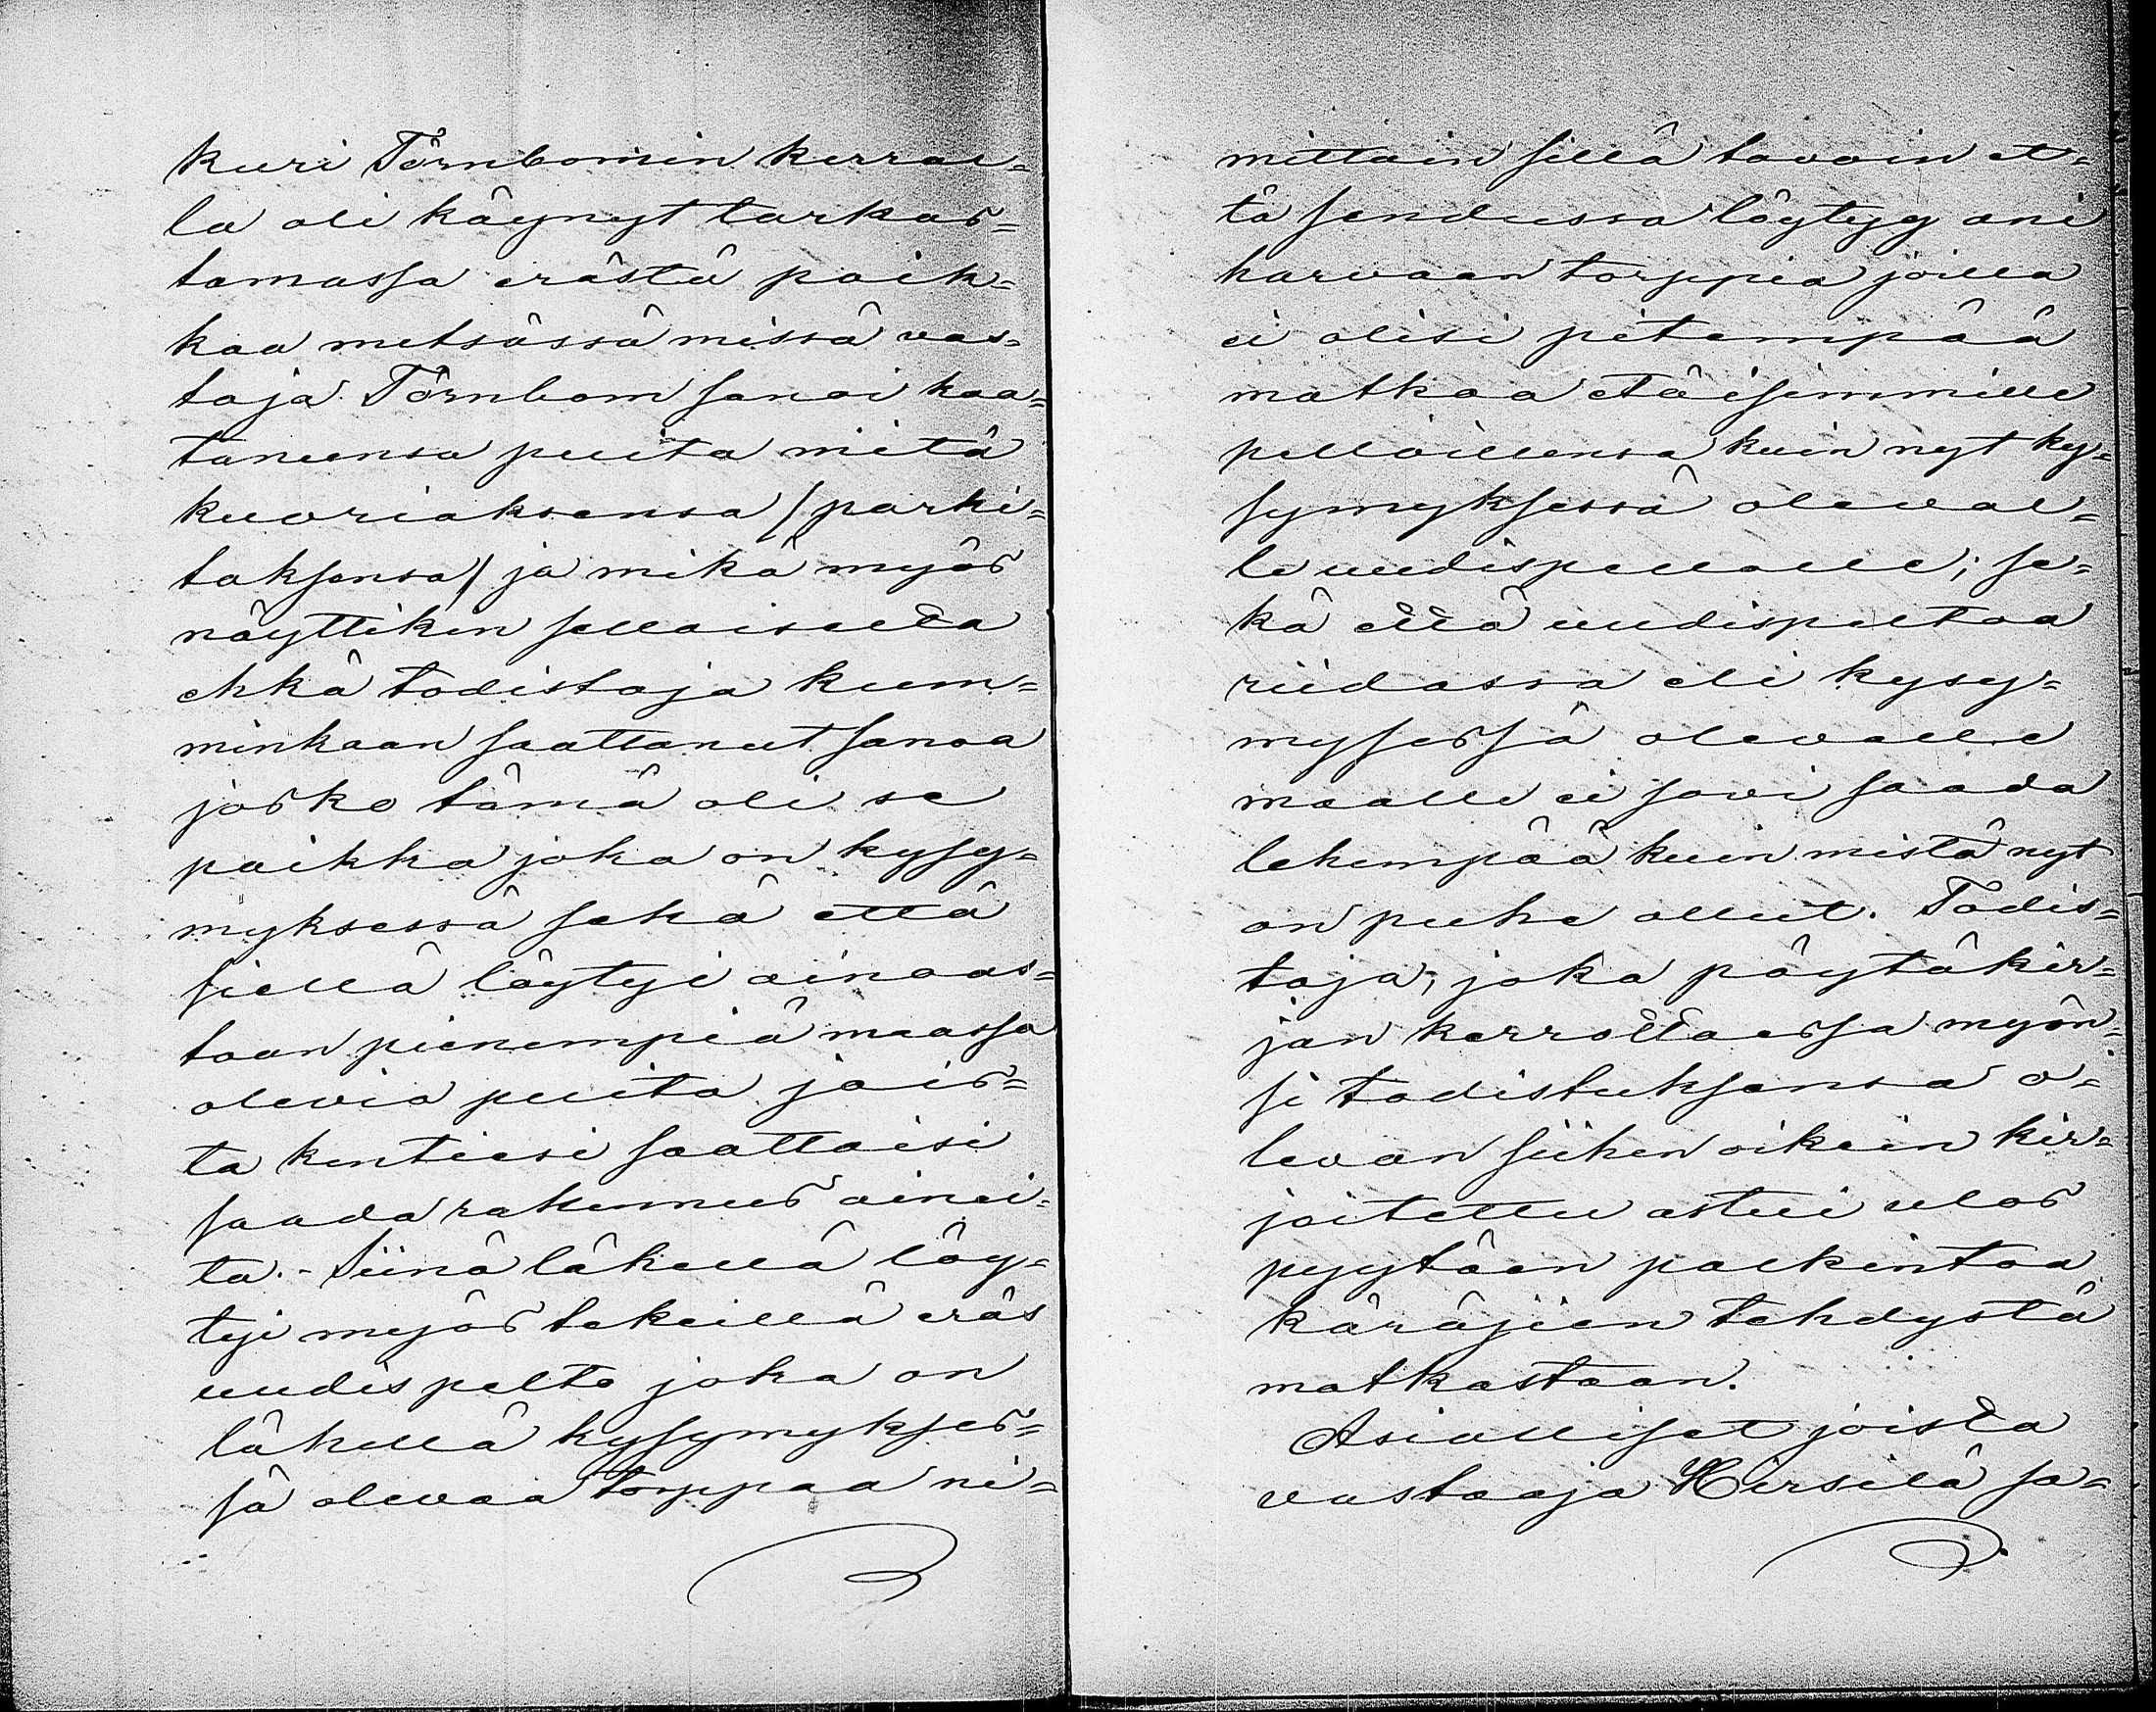 kuri Törnbomin kerral=
la oli käynyt tarkas=
tamassa erästä paik=
kaa metsässä missä vas=
taja Törnbom sanoi kaa=
taneensa puita mitä
kuoriaksensa /parki=
taksensa/ ja mikä myös
näyttikin sellaiselta
ehkä todistaja kum=
minkaan saattanut sanoa
josko tämä oli se
paikka joka on kysy=
myksessä sekä että
siellä löytyi ainoas=
taan pienempiä maassa
olevia puita jois=
ta kentiesi saattaisi
saada rakennus ainei=
ta. - Siinä lähellä löy=
tyi myös tekeillä eräs
uudispelto joka on
lähellä kysymykses=
sä olevaa torppaa ni=
mittäin sillä tavoin et=
tä seudussa löytyy ani
harvaan torppia joilla
ei olisi pitempää
matkaa etäisimmille
pelloillensa kuin nyt ky=
symyksessä oleval=
le uudispellolle; se=
kä että uudispeltoa
riidassa eli kysy=
mysessä olevalle
maalle ei sovi saada
lehempää kuin mistä nyt
on puhe ollut. Todis=
taja, joka pöytäkir=
jan kerrottaessa myön=
si todistuksensa o=
levan siihen oikein kir=
joitettu astui ulos
pyytäen palkintoa
käräjien tehdystä
matkastaan.
Asialliset joista
vastaaja Hirsilä sa=